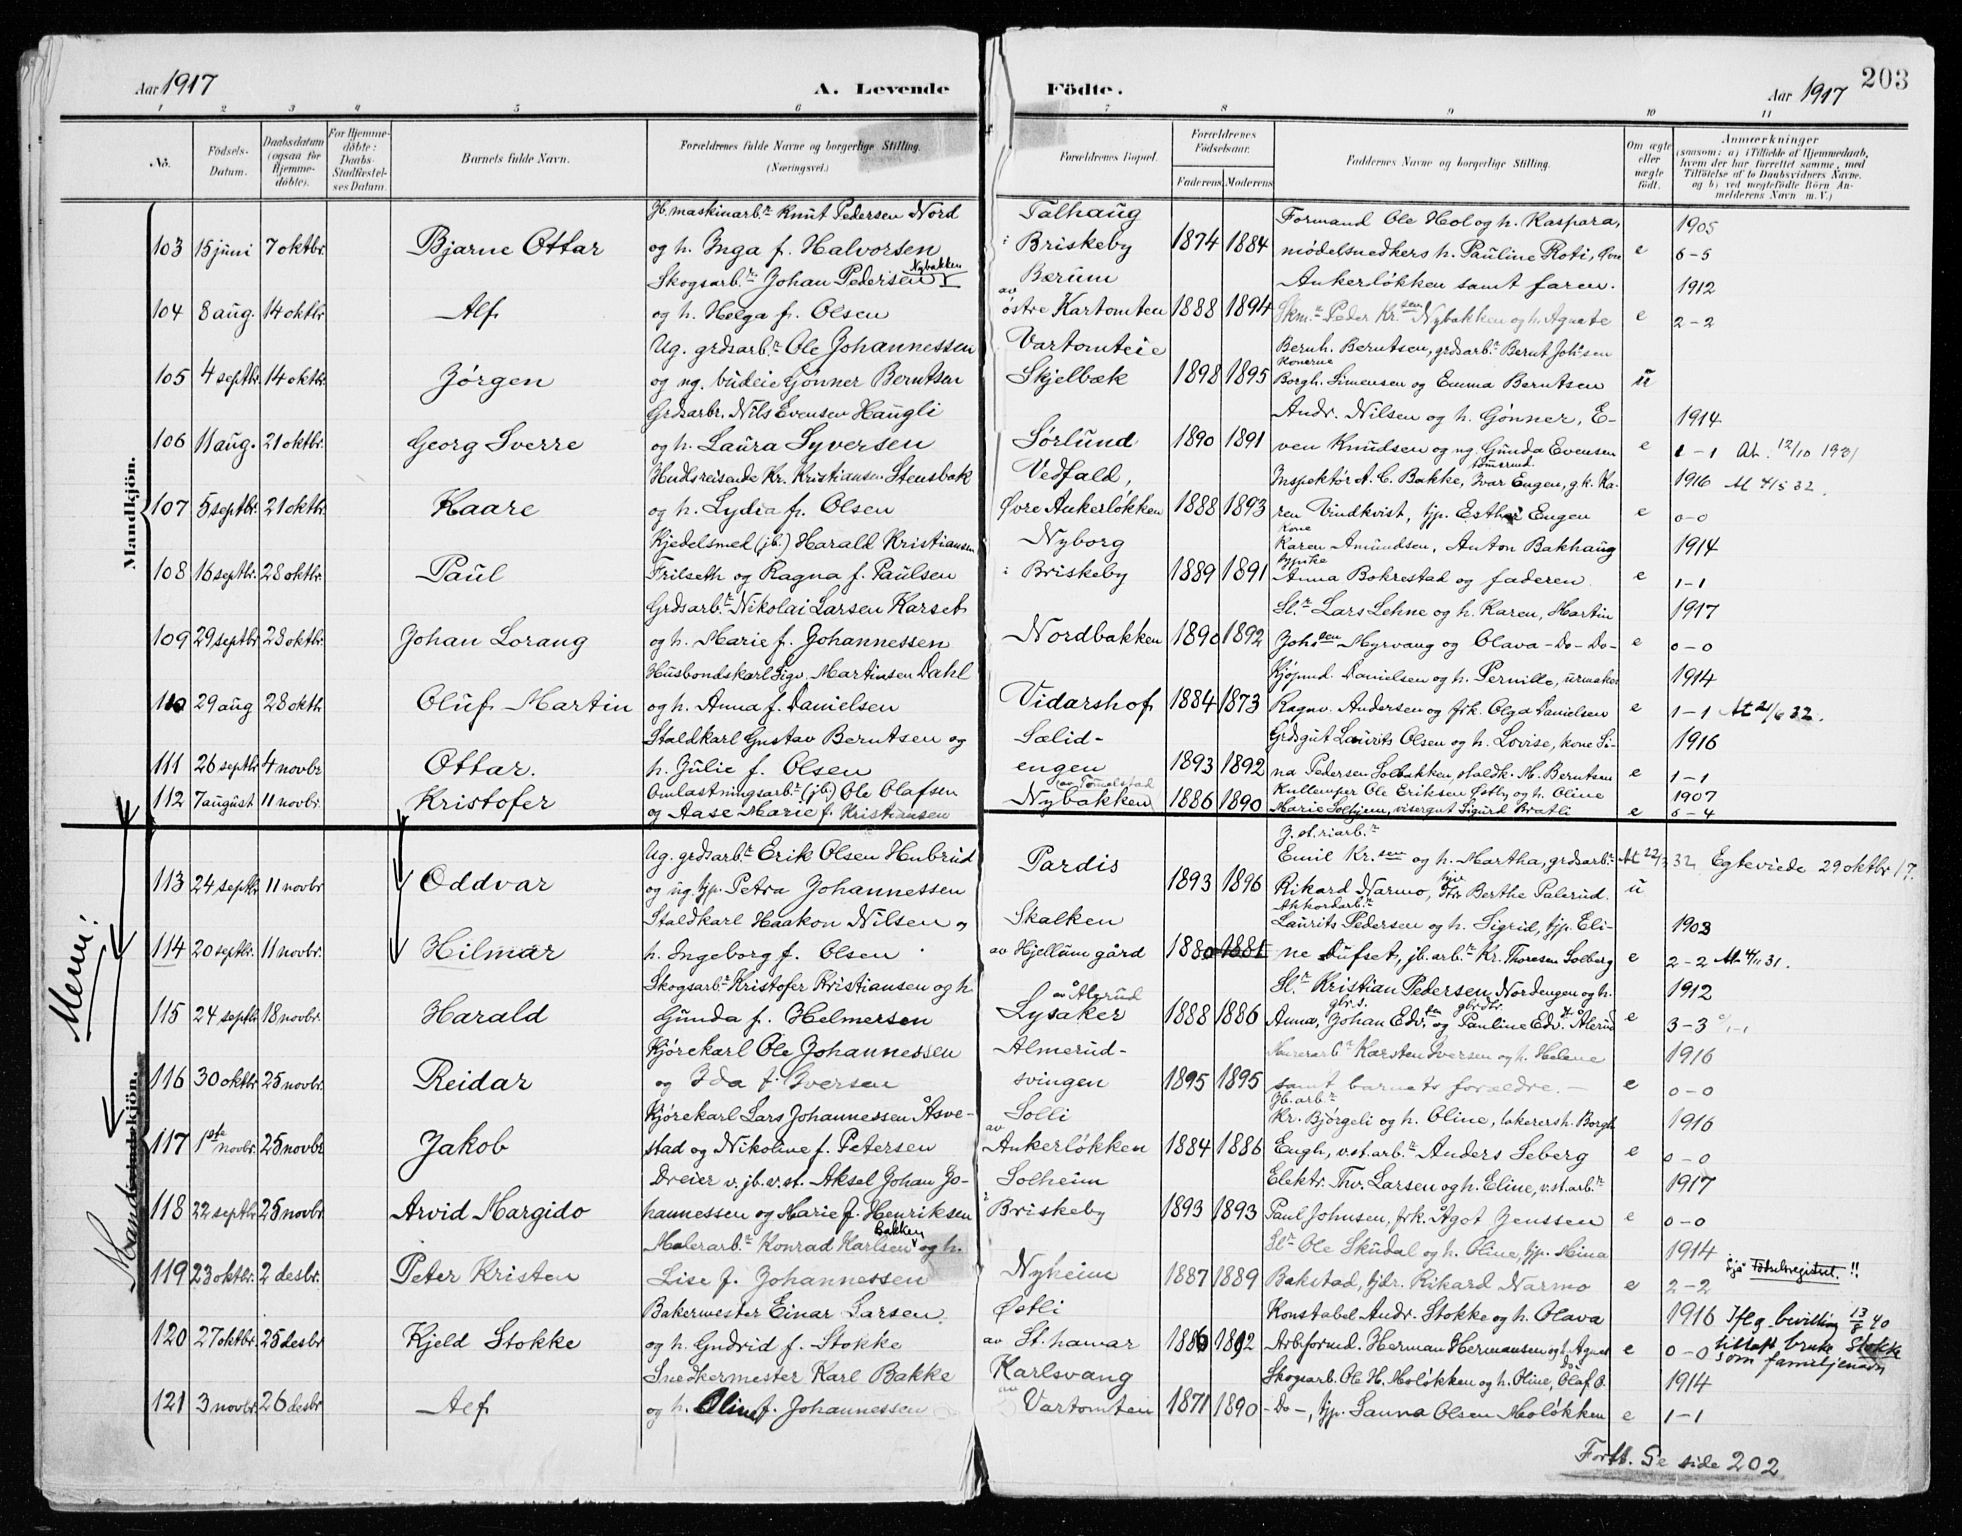 Aar 1917
A. Levende
Födte.
Aar 1917
203
1 2 3 4 5 6 7 8 9 10 11
No.
Födsels-Datum.
Daabsdatum (ogsaa for Hjemmedöbte).
For Hjemmedöbte: Daabs-Stadfæstelses Datum.
Barnets fulde Navn.
Forældrenes fulde Navne og borgerlige Stilling. (Næringsvei.)
Forældrenes Bopæl.
Forældrenes Födselsaar.
Faderens. Moderens.
Faddernes Navne og borgerlige Stilling.
Om ægte eller uægte födt.
Anmærkninger
(saasom: a) i Tilfælde af Hjemmedaab, hvem der har forrettet samme, med Tilföielse af to Daabsvidners Navne, og b) ved uægtefödte Börn Anmelderens Navn m. V.)
Mandkjön.
Jb. maskinarb.r Knut Pedersen Nord Talhaug Formand Ole Hol og h. Kaspara, 1905
103 15 juni 7 oktbr. Bjarne Ottar og h. Inga f. Halvorsen i Briskeby 1874 1884 modelsnedkers h. Pauline Roti, Øvre e 6-5
Skogsarb.r Johan Pedersen Nybakken Berum Ankerløkken samt faren. 1912
104 8 aug. 14 oktbr Alf og h. Helga f. Olsen av østre Kartomten 1888 1894 Skm.r Peder Kr.sen Nybakken og h. Agnate e 2-2
Ug. grdsarb.r Ole Johannessen Vartomteie Bernh. Berntsen, grdsarb.r Bernt Joh.sen
105 4 septbr 14 oktbr. Jørgen og ug. budeie Gønner Berntsen Skjelbæk 1898 1895 konerne Borgh. Simensen og Emma Berntsen u
Grdsarbr. Nils Evensen Haugli Andr. Nilsen og h. Gønner, E- 1914
106 11 aug. 21 oktbr. Georg Sverre og h. Laura Syversen Sørlund 1890 1891 ven Knudsen og ug. Gunda Evensen e 1-1 At. 12/10 1931
Hndlsreisende Kr. Kristiansen Stensbak Vedfald, Inspektør A. C. Bakke, Ivar Engen, gk. Ka- 1916
107 5 septbr. 21 oktbr. Kaare og h. Lydia f. Olsen Øvre Ankerløkken 1888 1893 ren Vindkvist, tjp. Esther Engen e 0-0
Kjedelsmed (jb.) Harald Kristiansen Nyborg kone Karen Amundsen, Anton Bakhaug 1914
108 16 septbr. 28 oktbr. Paul Frilseth og Ragna f. Paulsen i Briskeby 1889 1891 Anna Bokrestad og faderen e 1-1
Grdsarb.r Nikolai Larsen Karset Sl.r Lars Lehne og h. Karen, Martin 1917
109 29 septbr 28 oktbr. Johan Lorang og h. Marie f. Johannessen Nordbakken 1890 1892 Johs sen Myrvang og Olava -Do-Do- e 0-0
Husbondskarl Sigv. Martinsen Dahl Kjøpmd. Danielsen og h. Pernille, urmaker 1914
110 29 aug 28 oktb. Oluf Martin og h. Anna f. Danielsen Vidarshof 1884 1873 Ragnv. Andersen og frk. Olga Danielsen e 1-1 At 21/6 32.
Staldkarl Gustav Berntsen og Sælid- Grdsgut Laurits Olsen og h. Lovise, kone Si- 1916
111 26 septbr 4 novbr Ottar. h. Julie f. Olsen engen 1893 1892 na Pedersen Solbakken, staldk. M. Berntsen e 1-1
112 7 august 11 novbr. Kristofer Omlastningsarb.r (jb.) Ole Olafsen Nybakken 1886 1890 Kullemper Ole Eriksen Østby og h. Oline 1907
og Aase Marie f. Kristiansen Marie Solhjem, visergut Sigurd Bratli e 6-4
Menn:
Ug. grdsarb.r Erik Olsen Hubrud Pardis J. st. riarb.r Emil Kr.sen og h. Martha, grdsarb.r At 22/3 32 Egteviede 29 oktbr 17.
113 24 septbr 11 novbr Oddvar og ug. tjp. Petra Johannessen 1893 1896 Rikard Narmo, Berthe Palerud. u
Staldkarl Haakon Nilsen og Skalken Akkordarb.r Laurits Pedersen og h. Sigrid, tjp. Eli- 1903
114 20 septbr. 11 novbr. Hilmar h. Ingeborg f. Olsen av Hjellum gård 1880 1881 ne Dufset, jb. arb.r Kr. Thoresen Solberg e 2-2 At 4/11 31.
Skogsarb.r Kristofer Kristiansen og h. av Ålerud Sl.r Kristian Pedersen Nordengen og h. 1912
115 24 septbr 18 novbr. Harald Gunda f. Helmersen Lysaker 1888 1886 Anna, gbr.s. Johan Edv.sen og gbrdtr. Pauline Edv. Ålerud e 3-3
Kjørekarl Ole Johannessen Almerud- Murerarb.r Karsten Iversen og h. Helene 1916
116 30 oktbr 25 novbr. Reidar og Ida f. Iversen svingen 1895 1895 samt barnets forældre - e 0-0
Mandkjön.
Kjørekarl Lars Johannessen Åsve- Solli Jb. arb.r Kr. Bjørgeli og h. Oline, lakerersh. Borgh 1916
117 1ste novbr. 25 novbr Jakob stad og Nikoline f. Petersen av Ankerløkken 1884 1886 Engh, v.st.arb.r Anders Seberg e 0-0
Dreier v. jb. v. st. Aksel Johan Jo- Solheim Elektr. Thv. Larsen og h. Eline, v.st.arb.r 1917
118 22 septbr 25 novbr. Arvid Margido hannessen og Marie f. Henriksen i Briskeby 1893 1893 Paul Johnsen, frk. Ågot Jenssen e 0-0
Malerarb.r Konrad Karlsen Bakken og h. Sl.r Ole Skudal og h. Oline, tjp. Mina 1914
119 23 oktbr. 2 desbr. Peter Kristen Lise f. Johannessen Nyheim 1887 1889 Bakstad, tjdr. Rikard Narmo e 2-2
Bakermester Einar Larsen Østli Konstabel Andr. Stokke og h. Olava 1916 Iflg. bevilling 13/8 40
120 27 oktbr. 25 desbr Kjeld Stokke og h. Gudrid f. Stokke av St. hamar 1886 1892 Arb.formd. Herman Hermansen og h. Agnes e 0-0 tillatt bruke Stokke som familjenavn
Snedkermester Karl Bakke Karlsvang Skogsarb. Ole H. Moløkken og h. Oline, Olaf O. 1914
121 3 novbr. 26 desbr Alf og h. Oline f. Johannessen av Vartomten 1871 1890 -Do-, tjp. Sanna Olsen Moløkken e 1-1
Forts. Se side 202